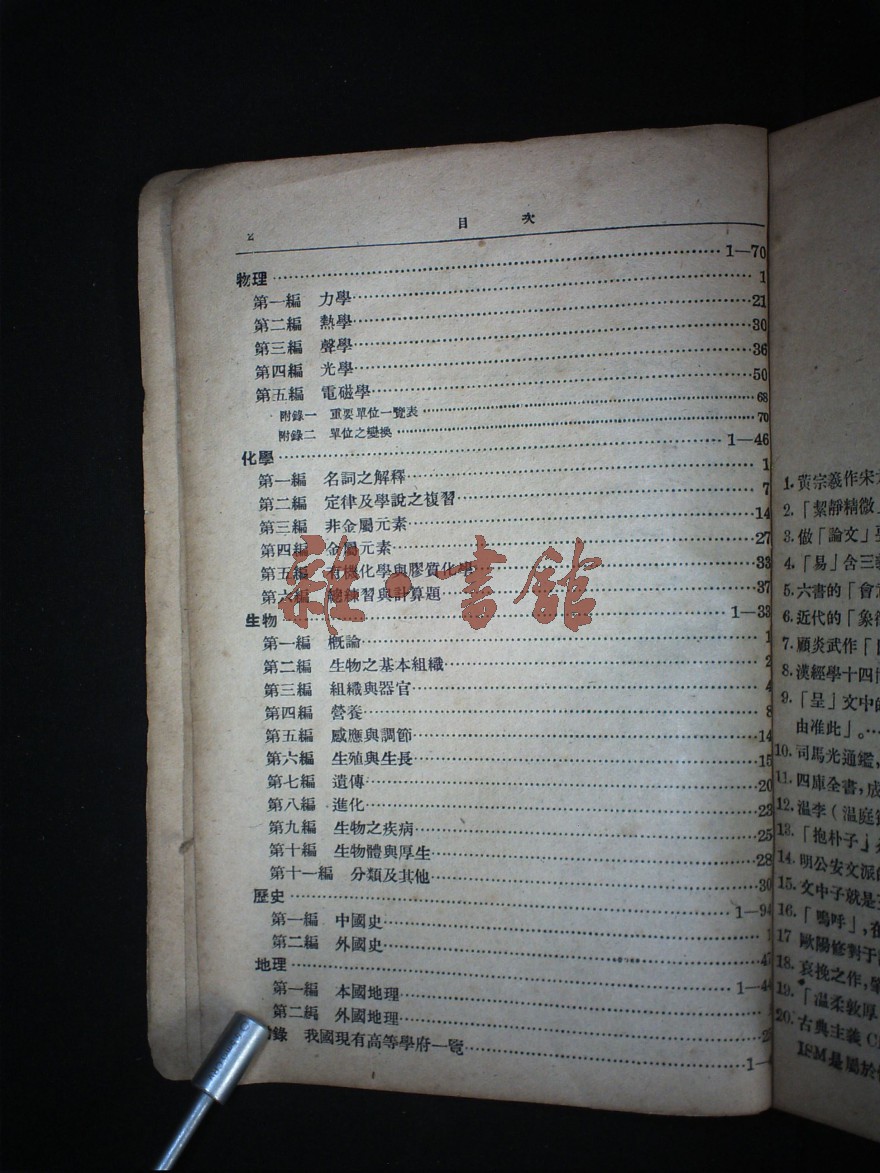 2 目次
物理 1—70
第一編 力學 1
第二編 熱學 21
第三編 聲學 30
第四編 光學 36
第五編 電磁學 50
附錄一 重要單位一覽表 68
附錄二 單位之變換 70
化學 1—46
第一編 名詞之解釋 1
第二編 定律及學說之複習 7
第三編 非金屬元素 14
第四編 金屬元素 27
第五編 有機化學與膠質化學 33
第六編 總練習與計算題 37
生物 1—33
第一編 概論 1
第二編 生物之基本組織 2
第三編 組織與器官 4
第四編 營養 8
第五編 感應與調節 14
第六編 生殖與生長 15
第七編 遺傳 20
第八編 進化 23
第九編 生物之疾病 25
第十編 生物體與厚生 28
第十一編 分類及其他 30
歷史 1—94
第一編 中國史 1
第二編 外國史 47
地理 1—4
第一編 本國地理 1
第二編 外國地理 2
錄 我國現有高等學府一覽 1—
雜·書館
1. 黃宗羲作宋
2. 「絜靜精微」
3. 做「論文」
4. 「易」含三
5. 六書的「會
6. 近代的「象
7. 顧炎武作「
8. 漢經學十四
9. 「呈」文中的
由准此」。…
10. 司馬光通鑑,
11. 四庫全書,成
12. 温李(温庭
13. 「抱朴子」
14. 明公安文派
15. 文中子就是
16. 「嗚呼」,在
17 歐陽修對于
18. 哀挽之作,
19. 「温柔敦厚
20. 古典主義 C
ISM是屬於